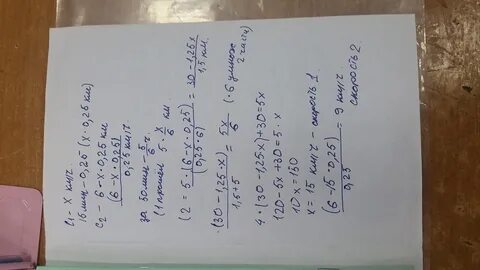 C₁ - x км/ч
15 мин - 0,25 (x · 0,25 км)
C₂ 6 - x · 0,25 км
(6 - x · 0,25) / 0,25 км/ч
за 50 мин - 5/6 ч.
(1 прошел 5 · x/6 км.
(2 = 5 · (6 - x · 0,25) / (0,25 · 6) = 30 - 1,25x / 1,5 км.
(30 - 1,25 · x) / 1,5 + 5 = 5x / 6 (· 6 умнож
2 части)
4 · (30 - 1,25 · x) + 30 = 5x
120 - 5x + 30 = 5 · x
10x = 150
x = 15 км/ч - скорость 1
(6 - 15 · 0,25) / 0,25 = 9 км/ч.
скорость 2